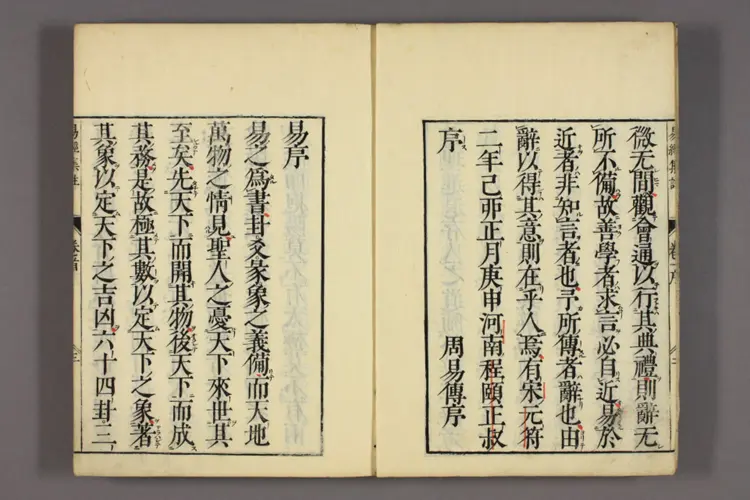 微无間觀會通以行其典禮則辭无
所不備故善學者求言必自近易於
近者非知言者也予所傳者辭也由
辭以得其意則在乎人焉有宋元符
二年己卯正月庚申河南程頤正叔
序
周易傳序
易序
易之爲書卦爻彖象之義備而天地
萬物之情見聖人之憂天下來世其
至矣先天下而開其物後天下而成
其務是故極其數以定天下之象著
其象以定天下之吉凶六十四卦三